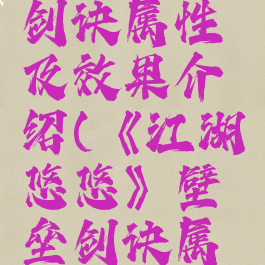 剑诀属性
及效果介
绍(《江湖
悠悠》壁
垒剑诀属